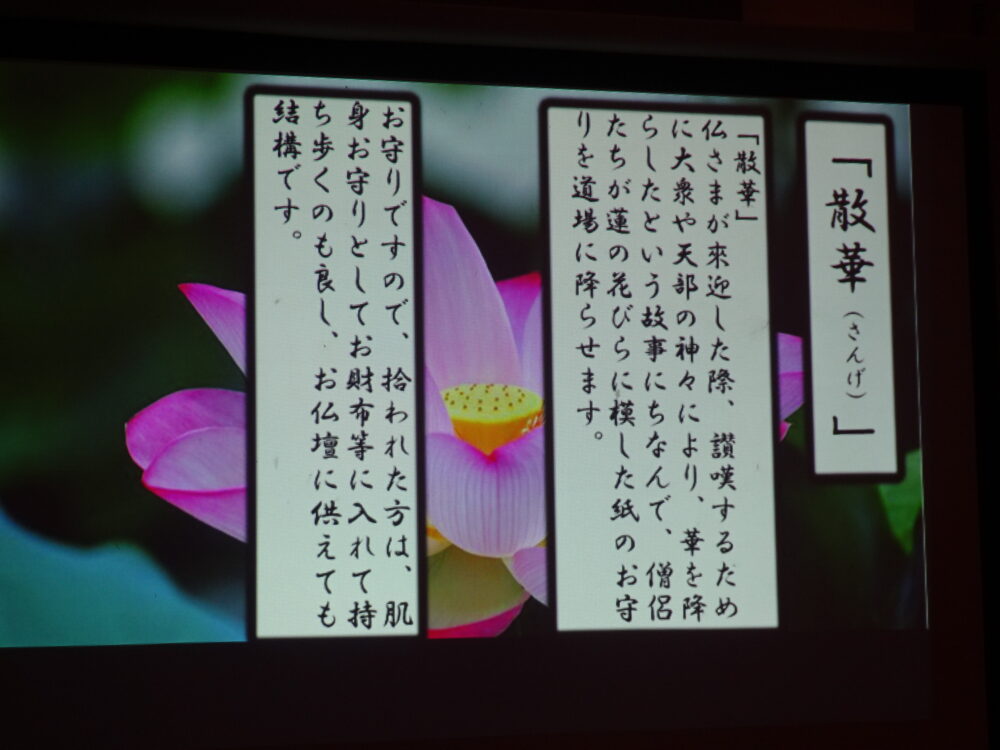 「散華（さんげ）」
「散華」
仏さまが來迎した際、讃嘆するため
に大衆や天部の神々により、華を降
らしたという故事にちなんで、僧侶
たちが蓮の花びらに模した紙のお守
りを道場に降らせます。
お守りですので、拾われた方は、肌
身お守りとしてお財布等に入れて持
ち歩くのも良し、お仏壇に供えても
結構です。